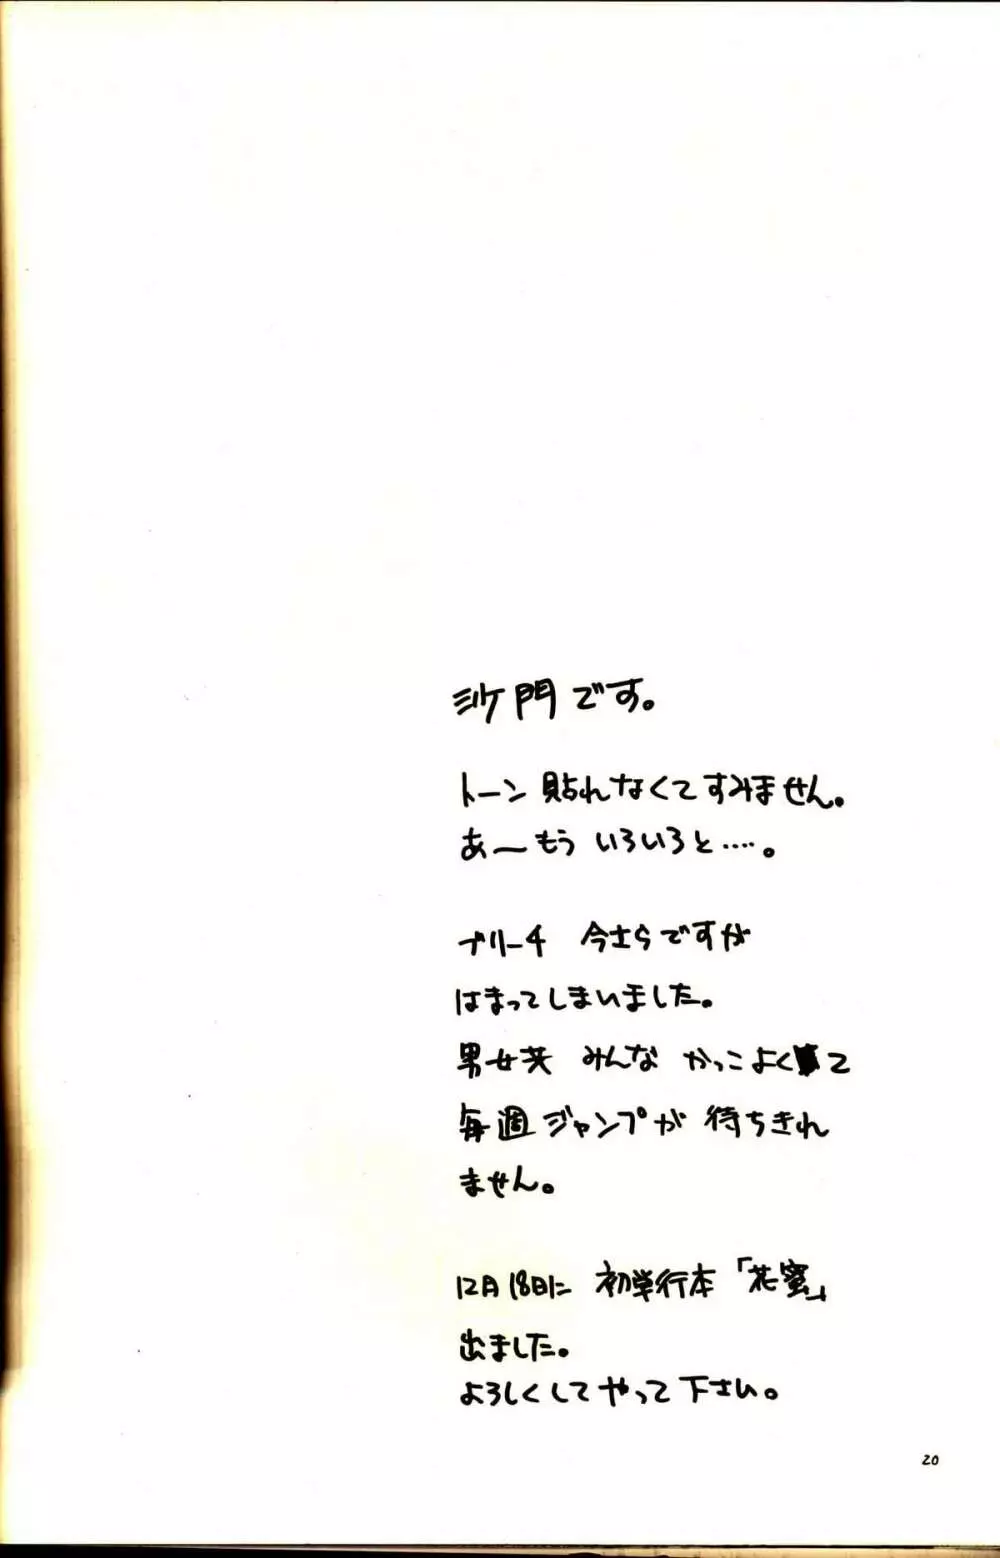 沙門です。
トーン 貼れなくてすみません。
あ〜もう いろいろと……。
ブリーチ 今さらですが
はまってしまいました。
男女共 みんな かっこよくて
毎週ジャンプが 待ちきれ
ません。
12月18日に 初単行本「花蜜」
出ました。
よろしくしてやって下さい。
20